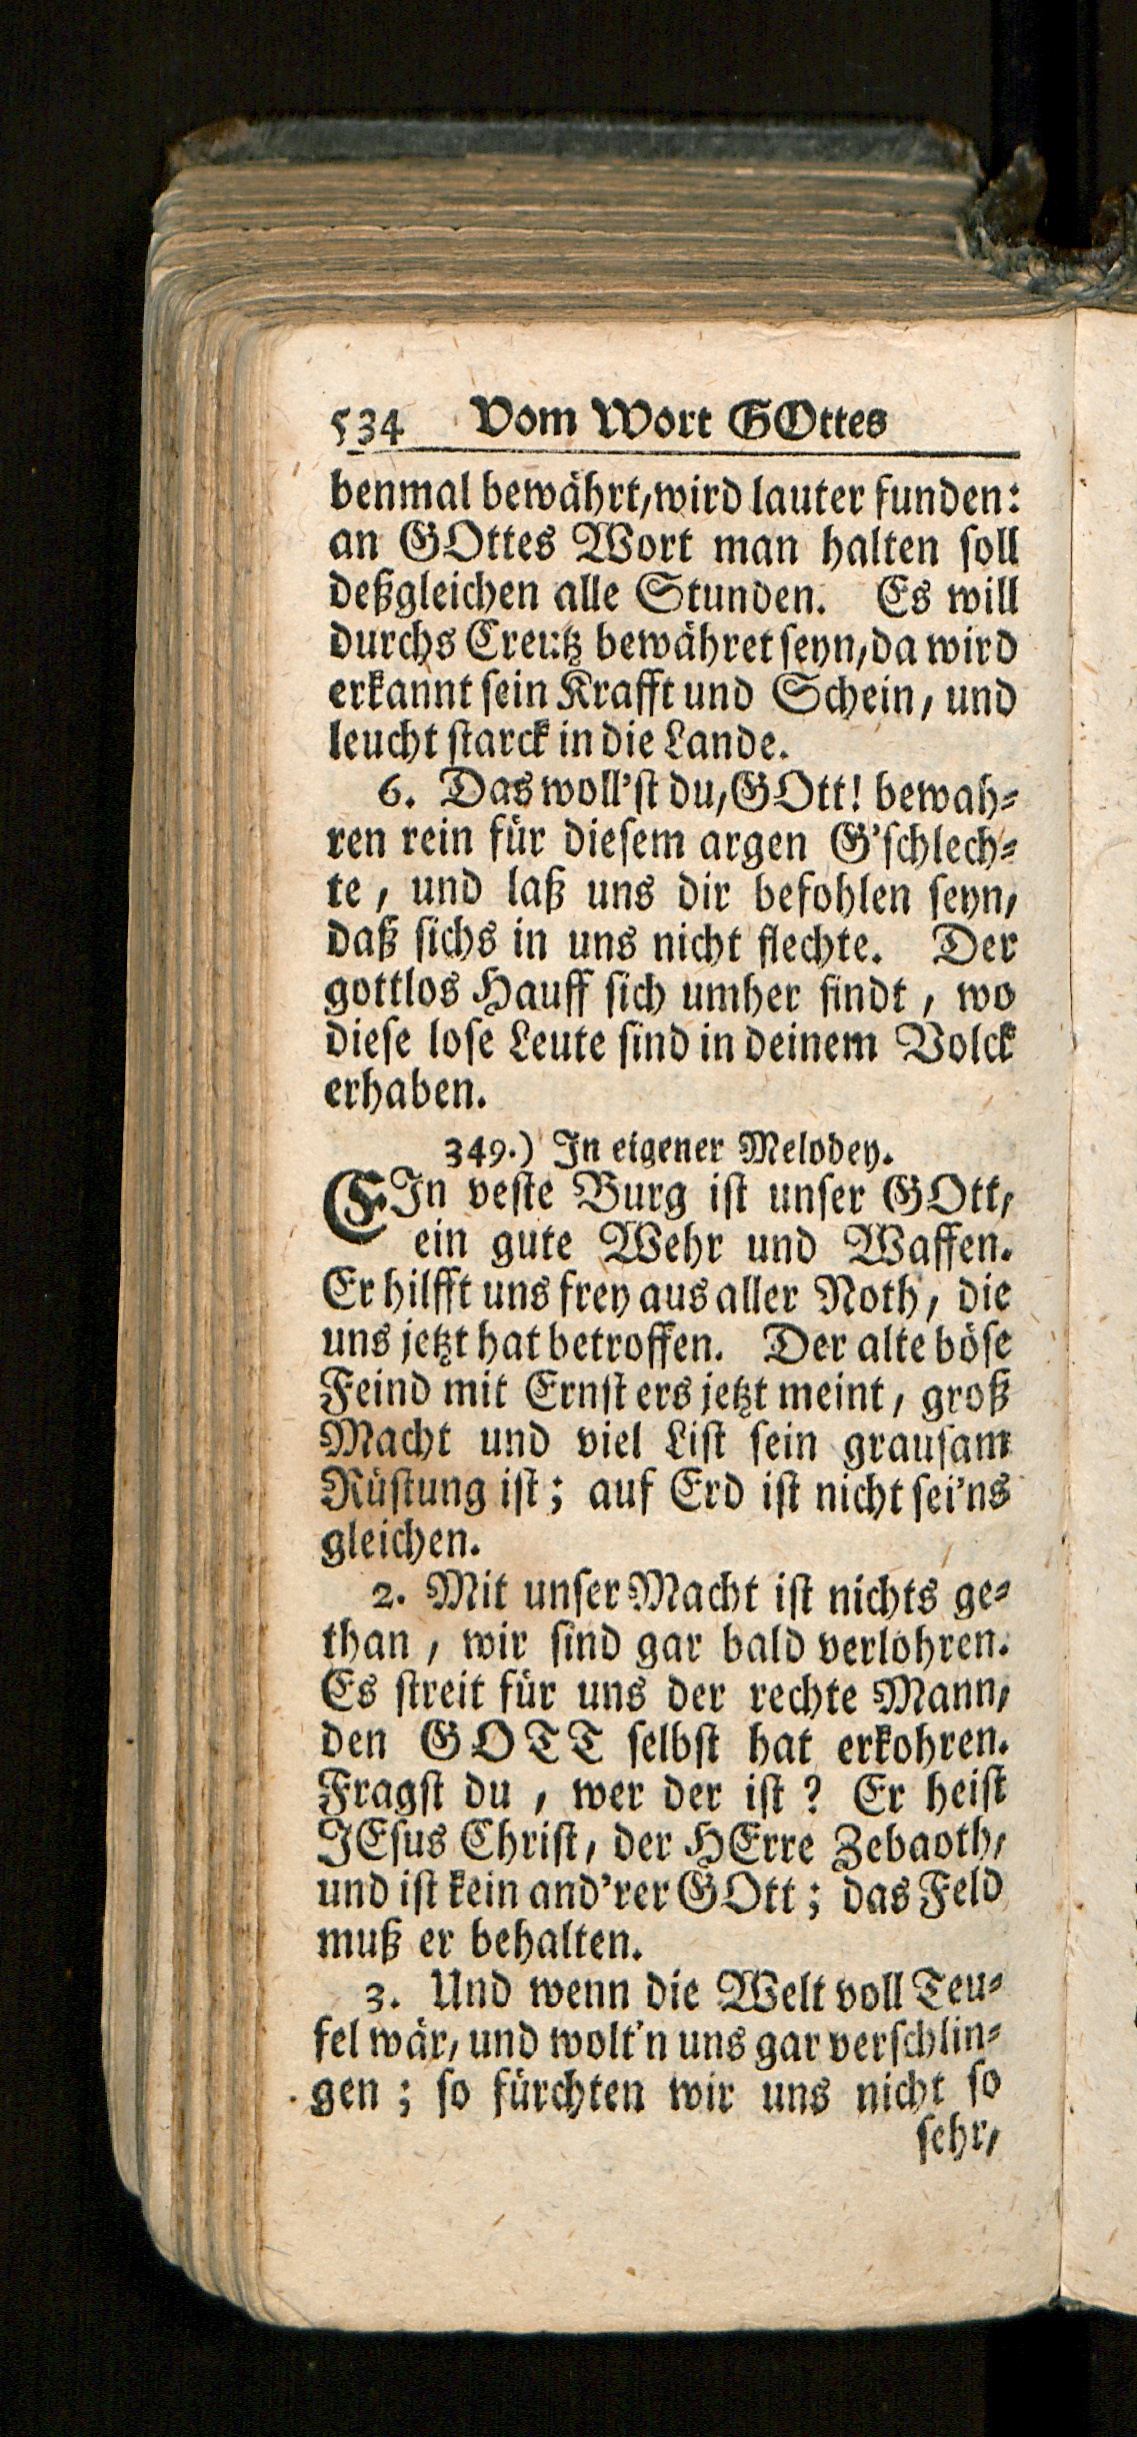 534 Vom Wort GOttes
benmal bewährt, wird lauter funden:
an GOttes Wort man halten soll
deßgleichen alle Stunden. Es will
durchs Creutz bewähret seyn, da wird
erkannt sein Krafft und Schein, und
leucht starck in die Lande.
6. Das woll'st du, GOtt! bewah-
ren rein für diesem argen G'schlech-
te, und laß uns dir befohlen seyn,
daß sichs in uns nicht flechte. Der
gottlos Hauff sich umher findt, wo
diese lose Leute sind in deinem Volck
erhaben.
349.) In eigener Melodey.
EIn veste Burg ist unser GOtt,
ein gute Wehr und Waffen.
Er hilfft uns frey aus aller Noth, die
uns jetzt hat betroffen. Der alte böse
Feind mit Ernst ers jetzt meint, groß
Macht und viel List sein grausam
Rüstung ist; auf Erd ist nicht sei'ns
gleichen.
2. Mit unser Macht ist nichts ge-
than, wir sind gar bald verlohren.
Es streit für uns der rechte Mann,
den GOTT selbst hat erkohren.
Fragst du, wer der ist? Er heist
JEsus Christ, der HErre Zebaoth,
und ist kein and'rer GOtt; das Feld
muß er behalten.
3. Und wenn die Welt voll Teu-
fel wär, und wolt'n uns gar verschlin-
gen; so fürchten wir uns nicht so
sehr,